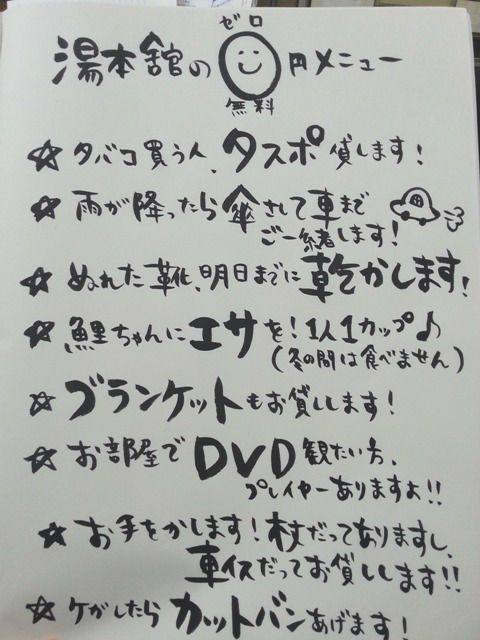 ゼロ
湯本舘の0円メニュー
無料
☆タバコ買う人、タスポ貸します!
☆雨が降ったら傘さして車まで
ご一緒します!
☆ぬれた靴、明日までに乾かします!
☆鯉ちゃんにエサを!1人1カップ♪
(冬の間は食べません)
☆ブランケットもお貸しします!
☆お部屋でDVD観たい方、
プレイヤーありますよ!!
☆お手をかします!杖だってありますし、
車イスだってお貸しします!!
☆ケガしたらカットバンあげます!